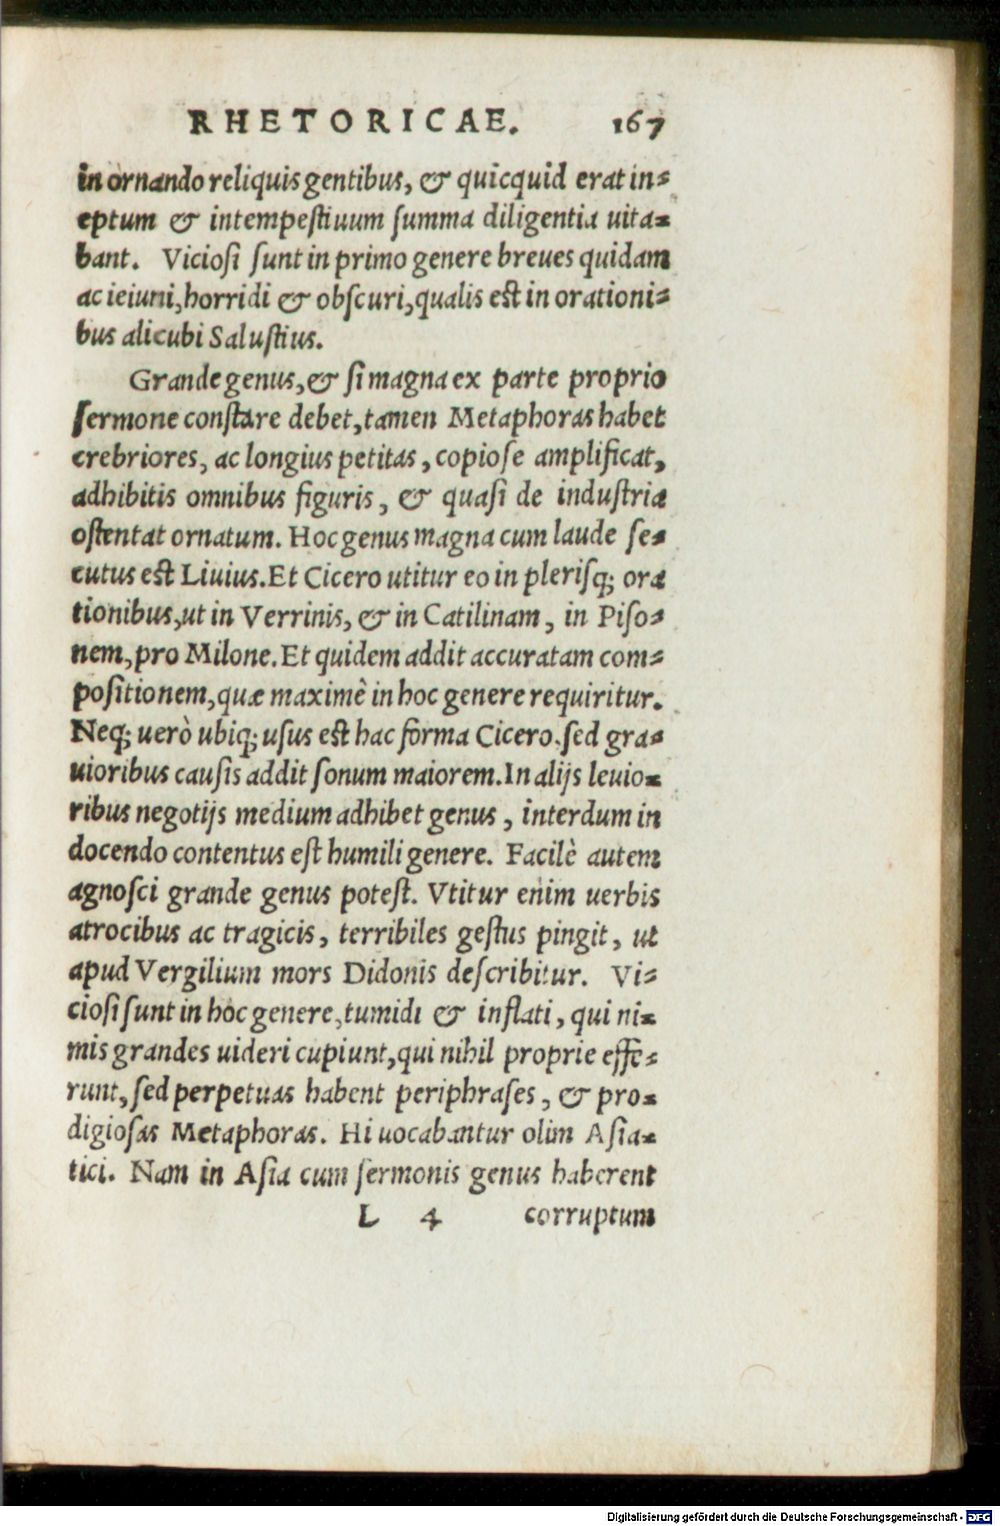 RHETORICAE. 167
in ornando reliquis gentibus, & quicquid erat in⸗
eptum & intempeſtiuum ſumma diligentia uita⸗
bant. Vicioſi ſunt in primo genere breues quidam
ac ieiuni, horridi & obſcuri, qualis eſt in orationi⸗
bus alicubi Saluſtius.
Grande genus, & ſi magna ex parte proprio
ſermone conſtare debet, tamen Metaphoras habet
crebriores, ac longius petitas, copioſe amplificat,
adhibitis omnibus figuris, & quaſi de induſtria
oſtentat ornatum. Hoc genus magna cum laude ſe⸗
cutus eſt Liuius. Et Cicero utitur eo in pleriſq; ora
tionibus, ut in Verrinis, & in Catilinam, in Piſo⸗
nem, pro Milone. Et quidem addit accuratam com⸗
poſitionem, quæ maximè in hoc genere requiritur.
Neq; uerò ubiq; uſus eſt hac forma Cicero, ſed gra⸗
uioribus cauſis addit ſonum maiorem. In alijs leuio⸗
ribus negotijs medium adhibet genus, interdum in
docendo contentus eſt humili genere. Facilè autem
agnoſci grande genus poteſt. Vtitur enim uerbis
atrocibus ac tragicis, terribiles geſtus pingit, ut
apud Vergilium mors Didonis deſcribitur. Vi⸗
cioſi ſunt in hoc genere, tumidi & inflati, qui ni⸗
mis grandes uideri cupiunt, qui nihil proprie effe⸗
runt, ſed perpetuas habent periphraſes, & pro⸗
digioſas Metaphoras. Hi uocabantur olim Aſia⸗
tici. Nam in Aſia cum ſermonis genus haberent
L 4 corruptum
Digitalisierung gefördert durch die Deutsche Forschungsgemeinschaft - DFG